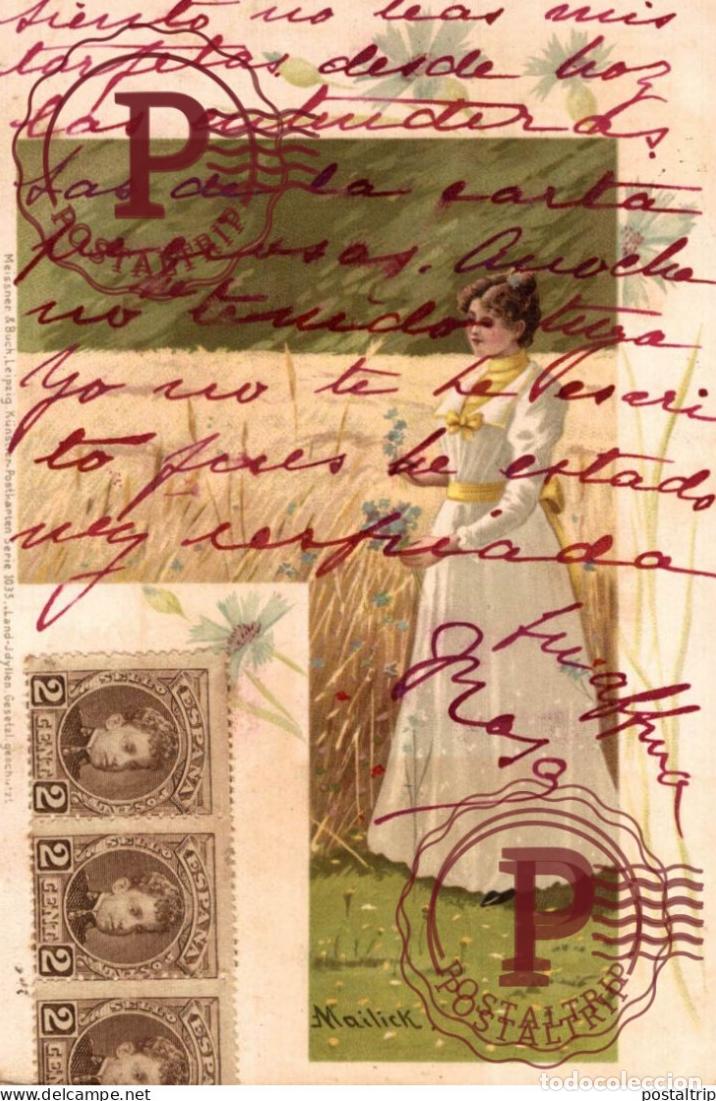 siento no leas mis
tarjetas desde hoy
las entenderas.
Las de la carta
preciosas. Anoche
no tenido tuya
Yo no te he escri
to pues he estado
muy resfriada
tu affma
Rosa
Meissner & Buch, Leipzig. Künstler-Postkarten Serie 1035 „Land-Jdyllen. Gesetzl. geschützt.
SELLO
ESPAÑA
2 CENT 2
POSTAL
SELLO
ESPAÑA
2 CENT 2
SELLO
ESPAÑA
2
Mailick
P
POSTALTRIP
P
POSTALTRIP
POSTALTRIP
todocoleccion
www.delcampe.net
postaltrip